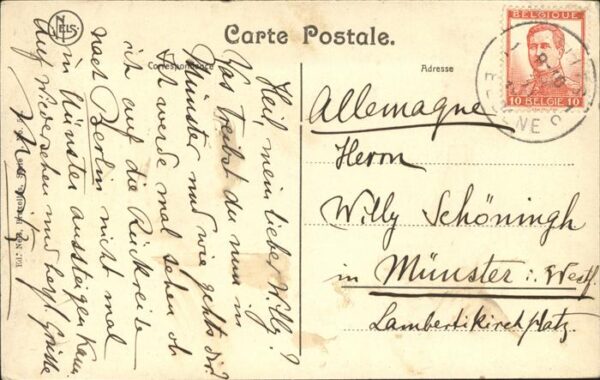 Carte Postale.
Correspondance
Adresse
NELS
BELGIQUE
10 BELGIË 10
Allemagne
Herrn
Willy Schöningh
in Münster i. Westf.
Lambertikirchplatz.
Hey, mein lieber Willy!
Was treibst du nun in
Münster und wie geht's dir?
Ich werde mal sehen ob
ich auf die Rückreise
nach Berlin nicht mal
in Münster aussteigen kann.
Auf Wiedersehen und herzl. Grüsse